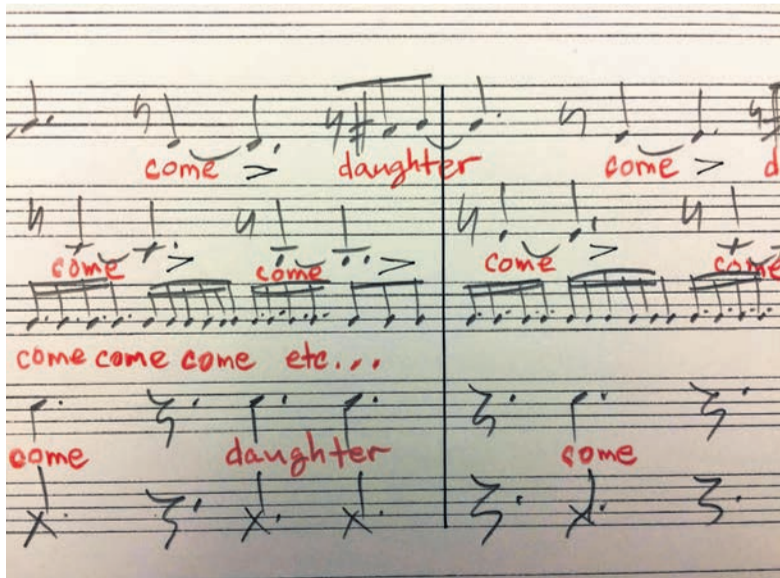 come > daughter come >
come > come > come > come
come come come etc...
come daughter come